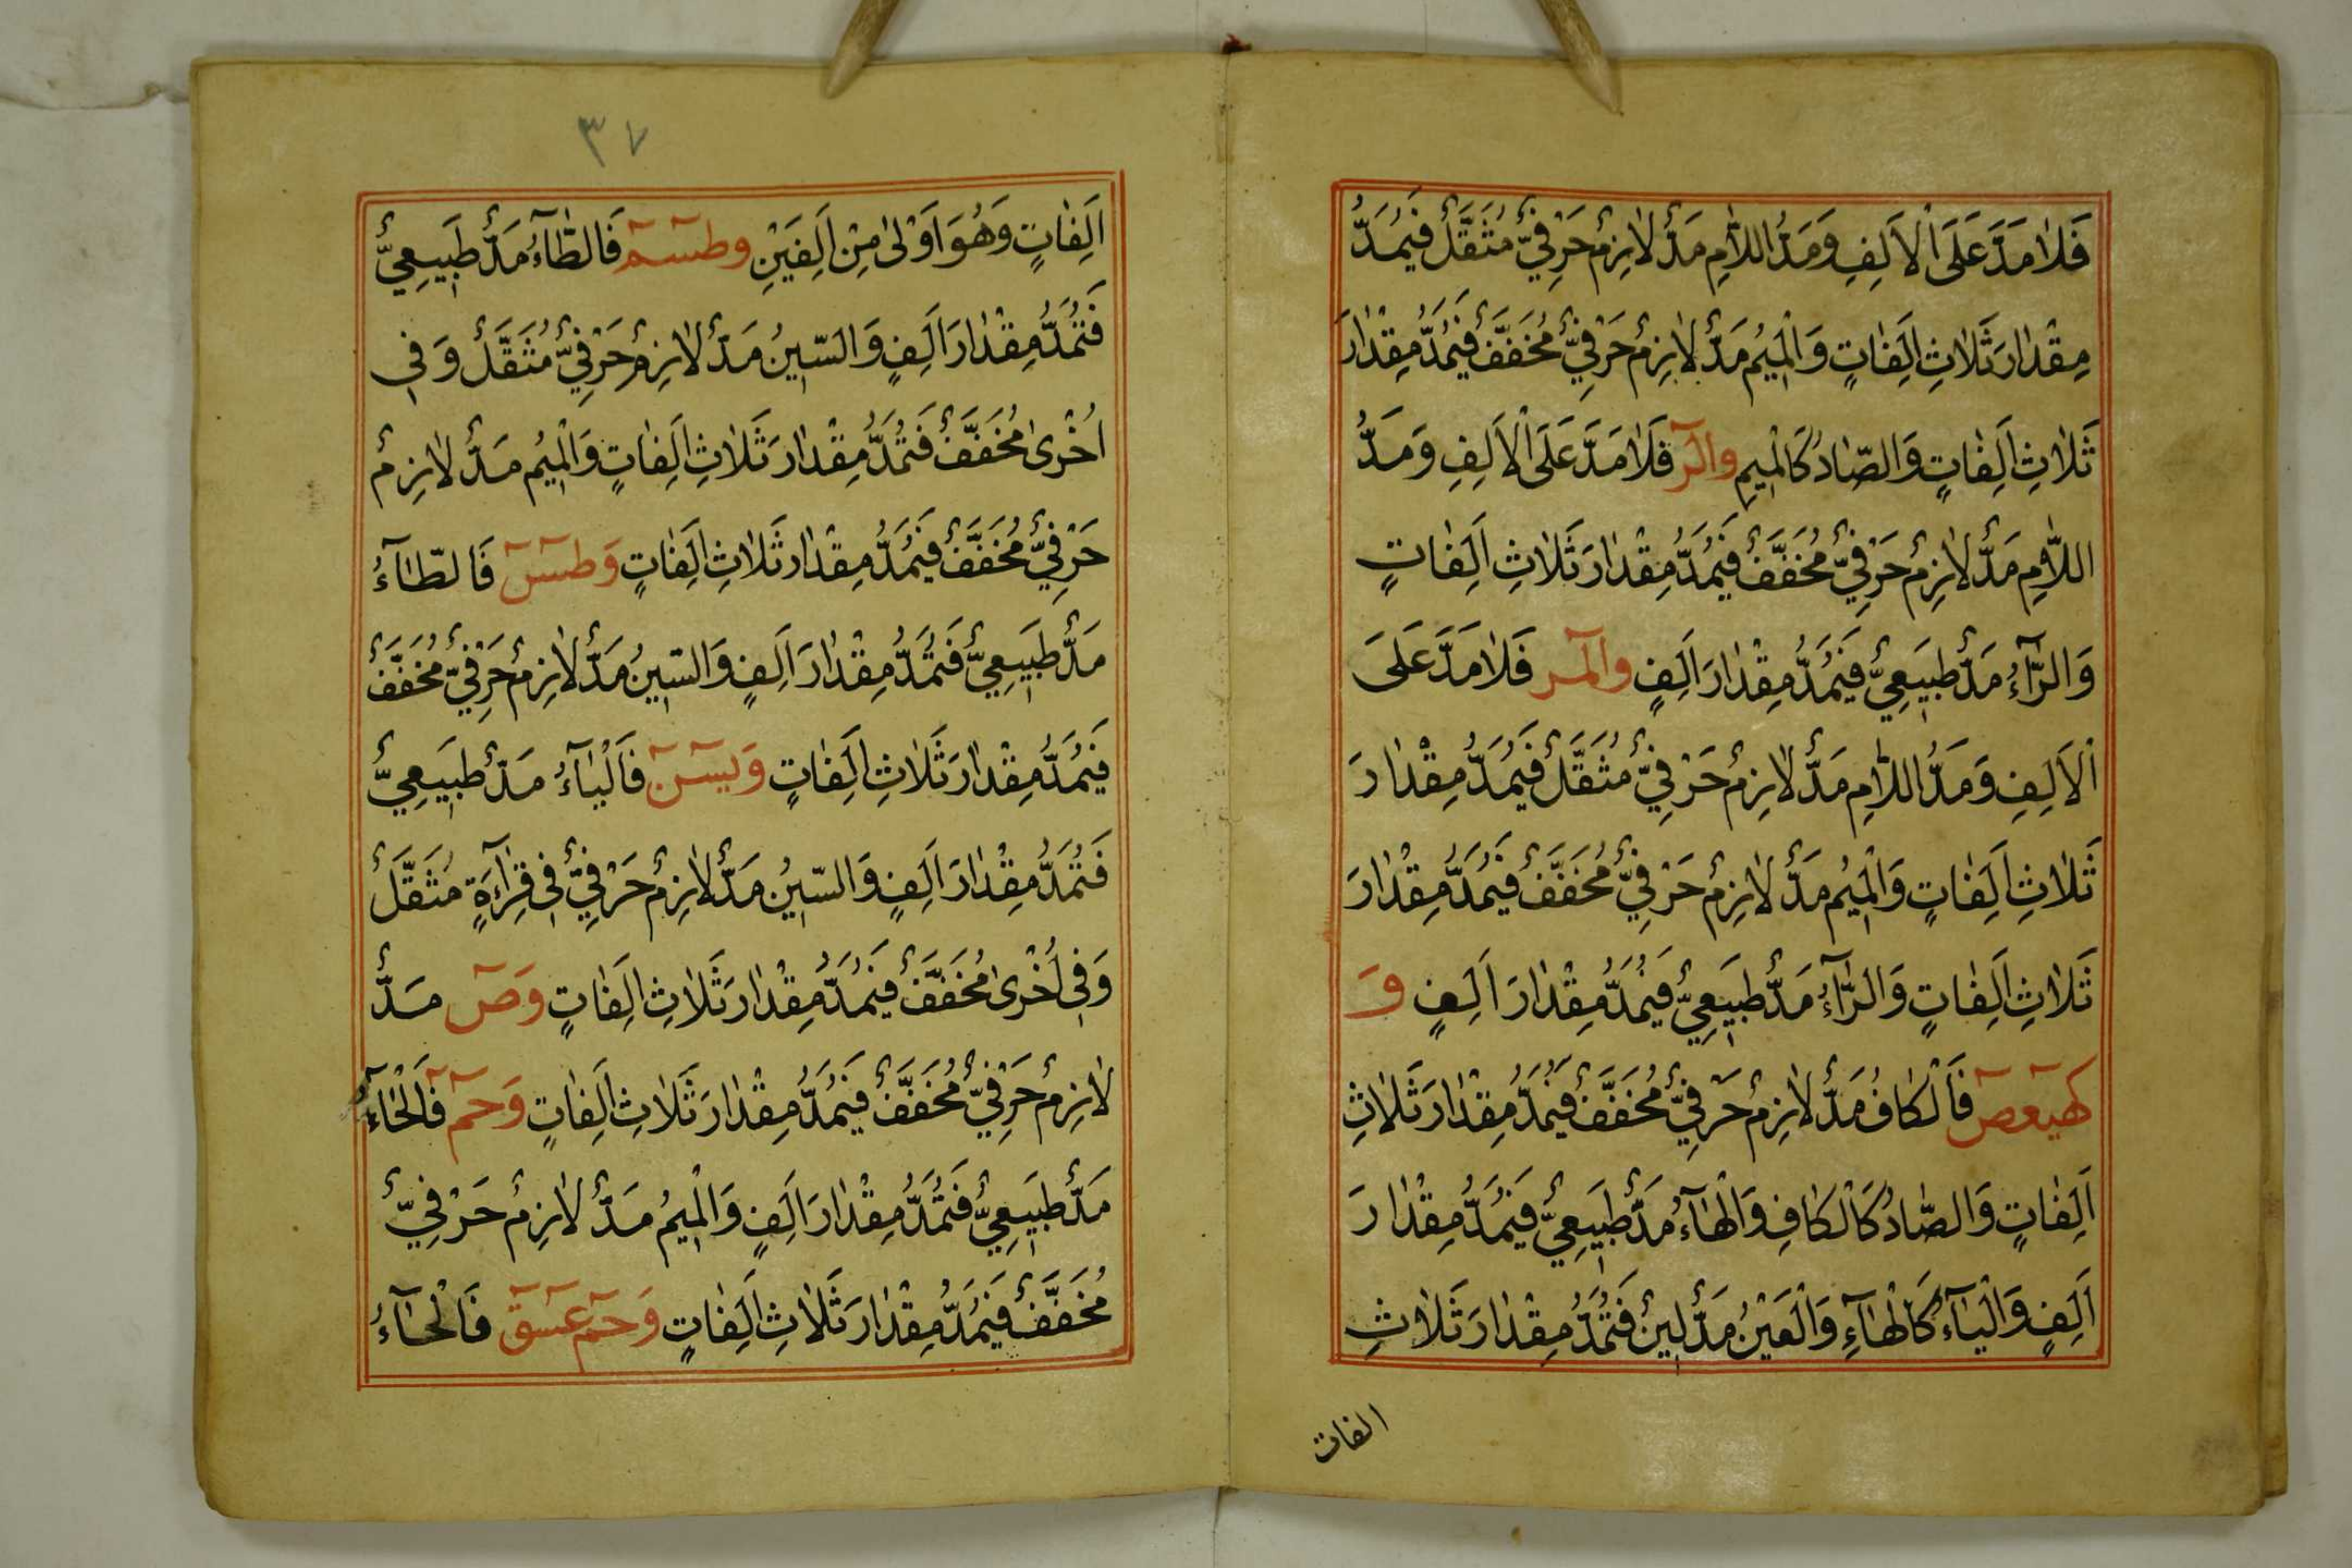 فَلَا مَدَّ عَلَى الْاَلِفِ وَمَدُّ اللَّامِ مَدٌّ لَازِمٌ حَرْفِيٌّ مُثَقَّلٌ فَيُمَدُّ
مِقْدَارَ ثَلَاثِ اَلِفَاتٍ وَالْمِيْمُ مَدٌّ لَازِمٌ حَرْفِيٌّ مُخَفَّفٌ فَيُمَدُّ مِقْدَارَ
ثَلَاثِ اَلِفَاتٍ وَالصَّادُ كَالْمِيمِ والٓرٓ فَلَا مَدَّ عَلَى الْاَلِفِ وَمَدُّ
اللَّامِ مَدٌّ لَازِمٌ حَرْفِيٌّ مُخَفَّفٌ فَيُمَدُّ مِقْدَارَ ثَلَاثِ اَلِفَاتٍ
وَالرَّآءُ مَدٌّ طَبِيَعِيٌّ فَيُمَدُّ مِقْدَارَ اَلِفٍ والٓمٓر فَلَا مَدَّ عَلَى
الْاَلِفِ وَمَدُّ اللَّامِ مَدٌّ لَازِمٌ حَرْفِيٌّ مُثَقَّلٌ فَيُمَدُّ مِقْدَارَ
ثَلَاثِ اَلِفَاتٍ وَالْمِيْمُ مَدٌّ لَازِمٌ حَرْفِيٌّ مُخَفَّفٌ فَيُمَدُّ مِقْدَارَ
ثَلَاثِ اَلِفَاتٍ وَالرَّآءُ مَدٌّ طَبِيَعِيٌّ فَيُمَدُّ مِقْدَارَ اَلِفٍ وَ
كٓهيٓعٓصٓ فَالْكَافُ مَدٌّ لَازِمٌ حَرْفِيٌّ مُخَفَّفٌ فَيُمَدُّ مِقْدَارَ ثَلَاثِ
اَلِفَاتٍ وَالصَّادُ كَالْكَافِ وَالْهَآءُ مَدٌّ طَبِيَعِيٌّ فَيُمَدُّ مِقْدَارَ
اَلِفٍ وَالْيَآءُ كَالْهَآءِ وَالْعَيْنُ مَدٌّ لِينٌ فَتُمَدُّ مِقْدَارَ ثَلَاثِ
الفات
٣٧
اَلِفَاتٍ وَهُوَ اَوْلىٰ مِنْ اَلِفَيْنِ وطٓسٓمٓ فَالطَّآءُ مَدٌّ طَبِيَعِيٌّ
فَتُمَدُّ مِقْدَارَ اَلِفٍ وَالسّيِنُ مَدٌّ لَازِمٌ حَرْفِيٌّ مُثَقَّلٌ وَفِي
اُخْرىٰ مُخَفَّفٌ فَتُمَدُّ مِقْدَارَ ثَلَاثِ اَلِفَاتٍ وَالْمِيْمُ مَدٌّ لَازِمٌ
حَرْفِيٌّ مُخَفَّفٌ فَيُمَدُّ مِقْدَارَ ثَلَاثِ اَلِفَاتٍ وَطٓسٓ فَالطَّآءُ
مَدٌّ طَبِيَعِيٌّ فَتُمَدُّ مِقْدَارَ اَلِفٍ وَالسّيِنُ مَدٌّ لَازِمٌ حَرْفِيٌّ مُخَفَّفٌ
فَيُمَدُّ مِقْدَارَ ثَلَاثِ اَلِفَاتٍ وَيٓسٓنٓ فَالْيَآءُ مَدٌّ طَبِيَعِيٌّ
فَتُمَدُّ مِقْدَارَ اَلِفٍ وَالسّيِنُ مَدٌّ لَازِمٌ حَرْفِيٌّ فِي قِرَآءَةٍ مُثَقَّلٌ
وَفِي اُخْرىٰ مُخَفَّفٌ فَيُمَدُّ مِقْدَارَ ثَلَاثِ اَلِفَاتٍ وَصٓ مَدٌّ
لَازِمٌ حَرْفِيٌّ مُخَفَّفٌ فَيُمَدُّ مِقْدَارَ ثَلَاثِ اَلِفَاتٍ وَحٓمٓ فَالْحَآءُ
مَدٌّ طَبِيَعِيٌّ فَتُمَدُّ مِقْدَارَ اَلِفٍ وَالْمِيْمُ مَدٌّ لَازِمٌ حَرْفِيٌّ
مُخَفَّفٌ فَيُمَدُّ مِقْدَارَ ثَلَاثِ اَلِفَاتٍ وَحٓمٓ عٓسٓقٓ فَالْحَآءُ